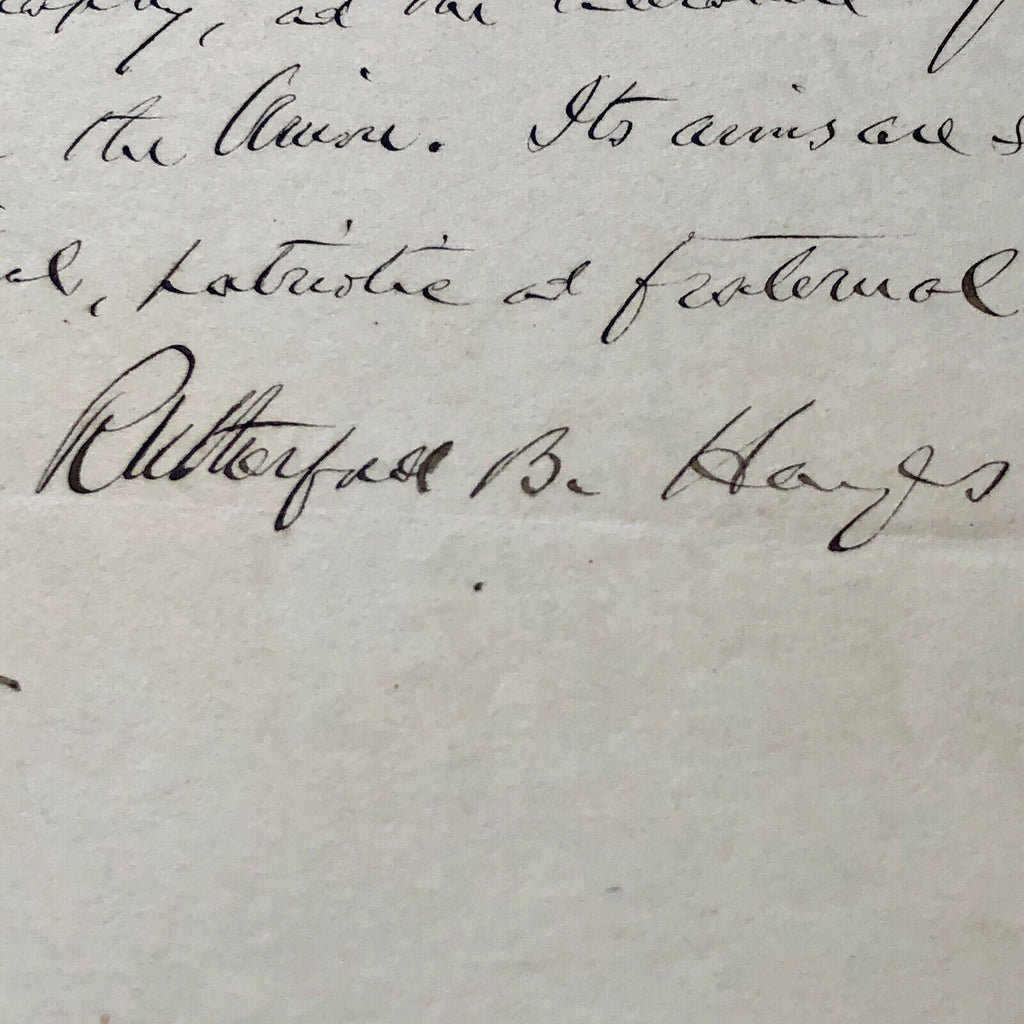 , and the
the Union. Its aims are
, patriotic and fraternal
Rutherford B. Hayes